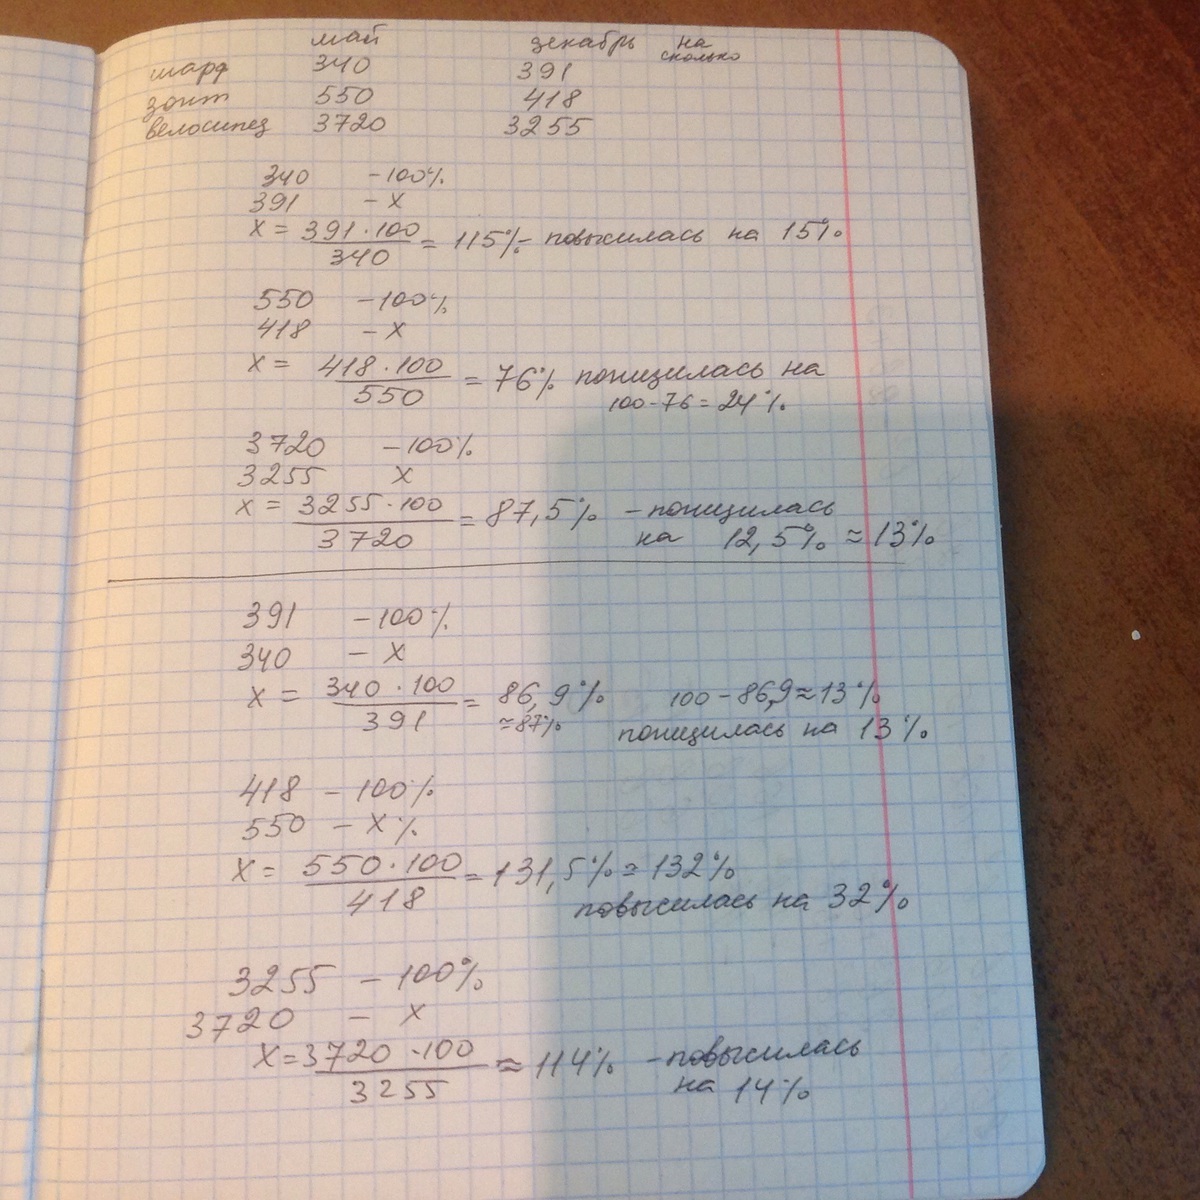 май декабрь на сколько
шарф 340 391
зонт 550 418
велосипед 3720 3255
340 - 100%
391 - x
x = 391 · 100 / 340 = 115% - повысилась на 15%
550 - 100%
418 - x
x = 418 · 100 / 550 = 76% понизилась на
100 - 76 = 24%
3720 - 100%
3255 x
x = 3255 · 100 / 3720 = 87,5% - понизилась
на 12,5% ≈ 13%
391 - 100%
340 - x
x = 340 · 100 / 391 = 86,9% 100 - 86,9 ≈ 13%
≈ 87% понизилась на 13%
418 - 100%
550 - x%
x = 550 · 100 / 418 = 131,5% ≈ 132%
повысилась на 32%
3255 - 100%
3720 - x
x = 3720 · 100 / 3255 ≈ 114% - повысилась
на 14%